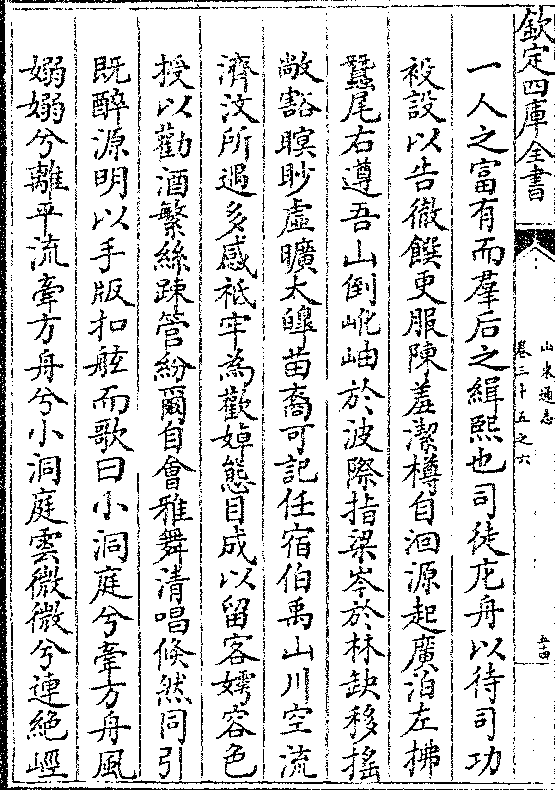 欽定四庫全書
山東通志
卷三十五之六
五十四
一人之富有而羣后之緝熙也司徒庀舟以待司功
祓設以告徹饌更服陳羞潔樽自洄源起廣泊左拂
蠶尾右遵吾山倒岮岫於波際指梁岑於林缺移搖
敞豁瞑眇虛曠太皥苗裔可記任宿伯禹山川空流
濟汶所遇多感祗牢為歡婥態目成以留客嫮容色
授以勸酒繁絲踈管紛爾自會雅舞清唱倏然同引
既醉源明以手版扣舷而歌曰小洞庭兮牽方舟風
嫋嫋兮離平流牽方舟兮小洞庭雲微微兮連絶巠